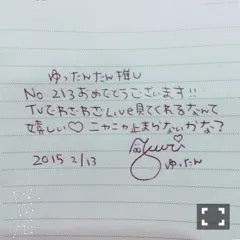 ゆったんたん推し
No 213 おめでとうございます!!
TVでわざわざLive見てくれるなんて
嬉しい♡ ニヤニヤ止まらないかな?
2015 2/13
ゆったん